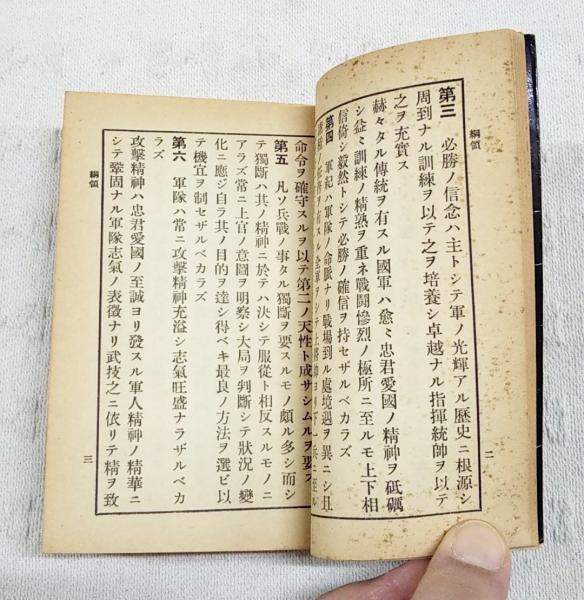 綱領
第三 必勝ノ信念ハ主トシテ軍ノ光輝アル歴史ニ根源シ
周到ナル訓練ヲ以テ之ヲ培養シ卓越ナル指揮統帥ヲ以テ
之ヲ充實ス
赫々タル傳統ヲ有スル國軍ハ愈ミ忠君愛國ノ精神ヲ砥礪
シ益ミ訓練ノ精熟ヲ重ネ戰鬪慘烈ノ極所ニ至ルモ上下相
信倚シ毅然トシテ必勝ノ確信ヲ持セザルベカラズ
第四 軍紀ハ軍隊ノ命脈ナリ戰場到ル處境遇ヲ異ニシ且
ノ任務ヲ有スル全軍ヲシテ上將帥ヨリ下一兵ニ至ル
二
命令ヲ確守スルヲ以テ第二ノ天性ト成サシムルヲ要ス
第五 凡ソ兵戰ノ事タル獨斷ヲ要スルモノ頗ル多シ而シ
テ獨斷ハ其ノ精神ニ於テハ決シテ服從ト相反スルモノニ
アラズ常ニ上官ノ意圖ヲ明察シ大局ヲ判斷シテ狀況ノ變
化ニ應ジ自ラ其ノ目的ヲ達シ得ベキ最良ノ方法ヲ選ビ以
テ機宜ヲ制セザルベカラズ
第六 軍隊ハ常ニ攻擊精神充溢シ志氣旺盛ナラザルベカ
ラズ
攻擊精神ハ忠君愛國ノ至誠ヨリ發スル軍人精神ノ精華ニ
シテ鞏固ナル軍隊志氣ノ表徵ナリ武技之ニ依リテ精ヲ致
綱領
三